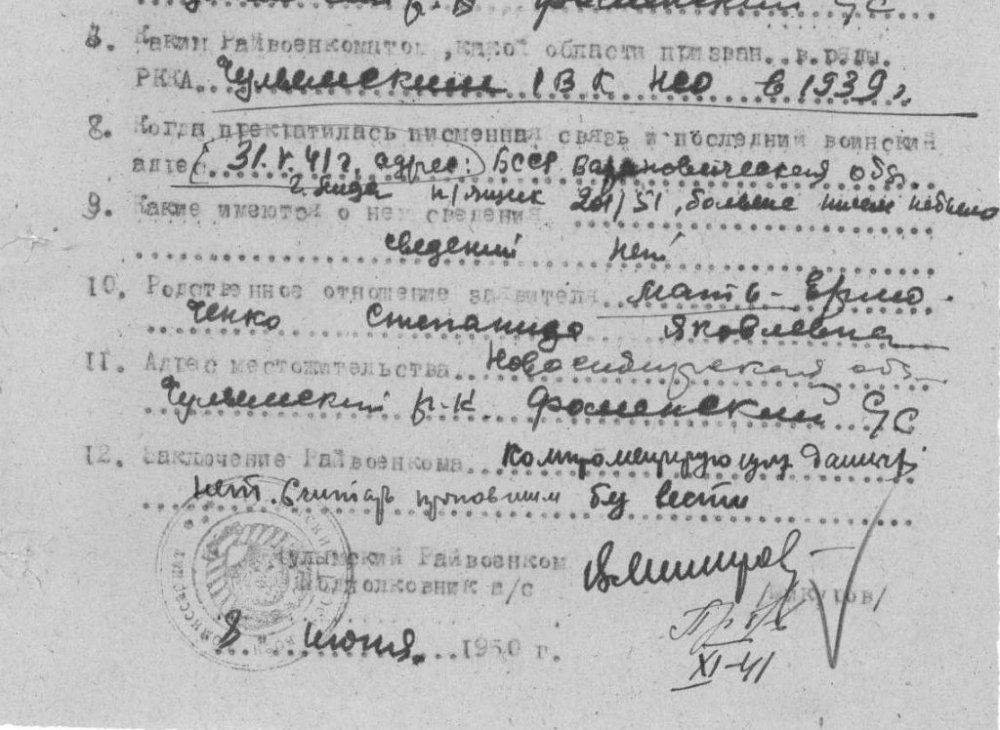 р-н Фоминский с/с
7. Каким Райвоенкоматом, какой области призван в ряды
РККА Чулымским РВК НСО в 1939 г.
8. Когда прекратилась писменная связь и последний воинский
адрес 31.V.41 г. адрес: БССР Барановической обл.
г. Лида п/ящик 201/51, больше писем небыло
9. Какие имеются о нем сведения
сведений нет
10. Родственное отношение заявителя мать - Ермо
ченко Степанида Яковлевна
11. Адрес местожительства Новосибирская обл
Чулымский р-н Фоминский с/с
12. Заключение Райвоенкома Компрометирующих данных
нет. Считать пропавшим без вести
Чулымский Райвоенком
Подполковник а/с
8 " июня 1950 г.
XI-41